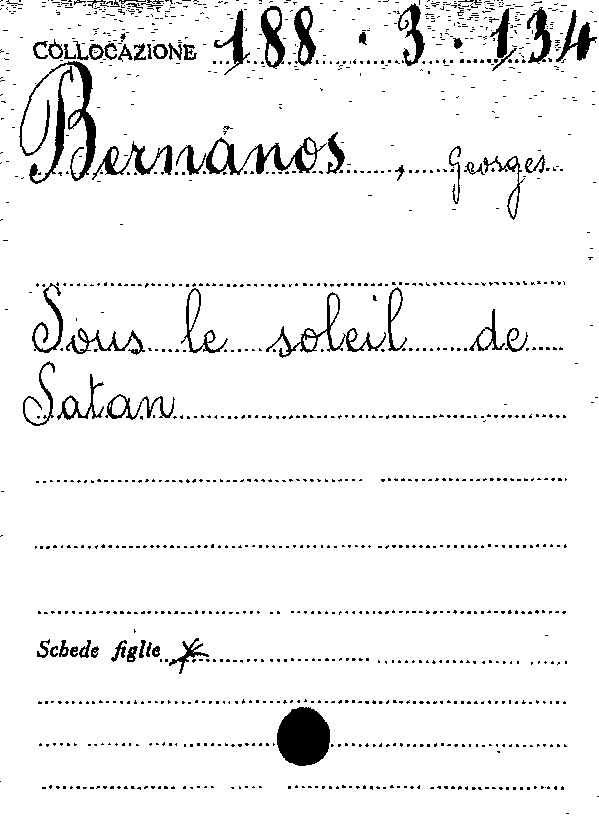 COLLOCAZIONE 188 . 3 . 134
Bernanos , Georges
Sous le soleil de
Satan
Schede figlie